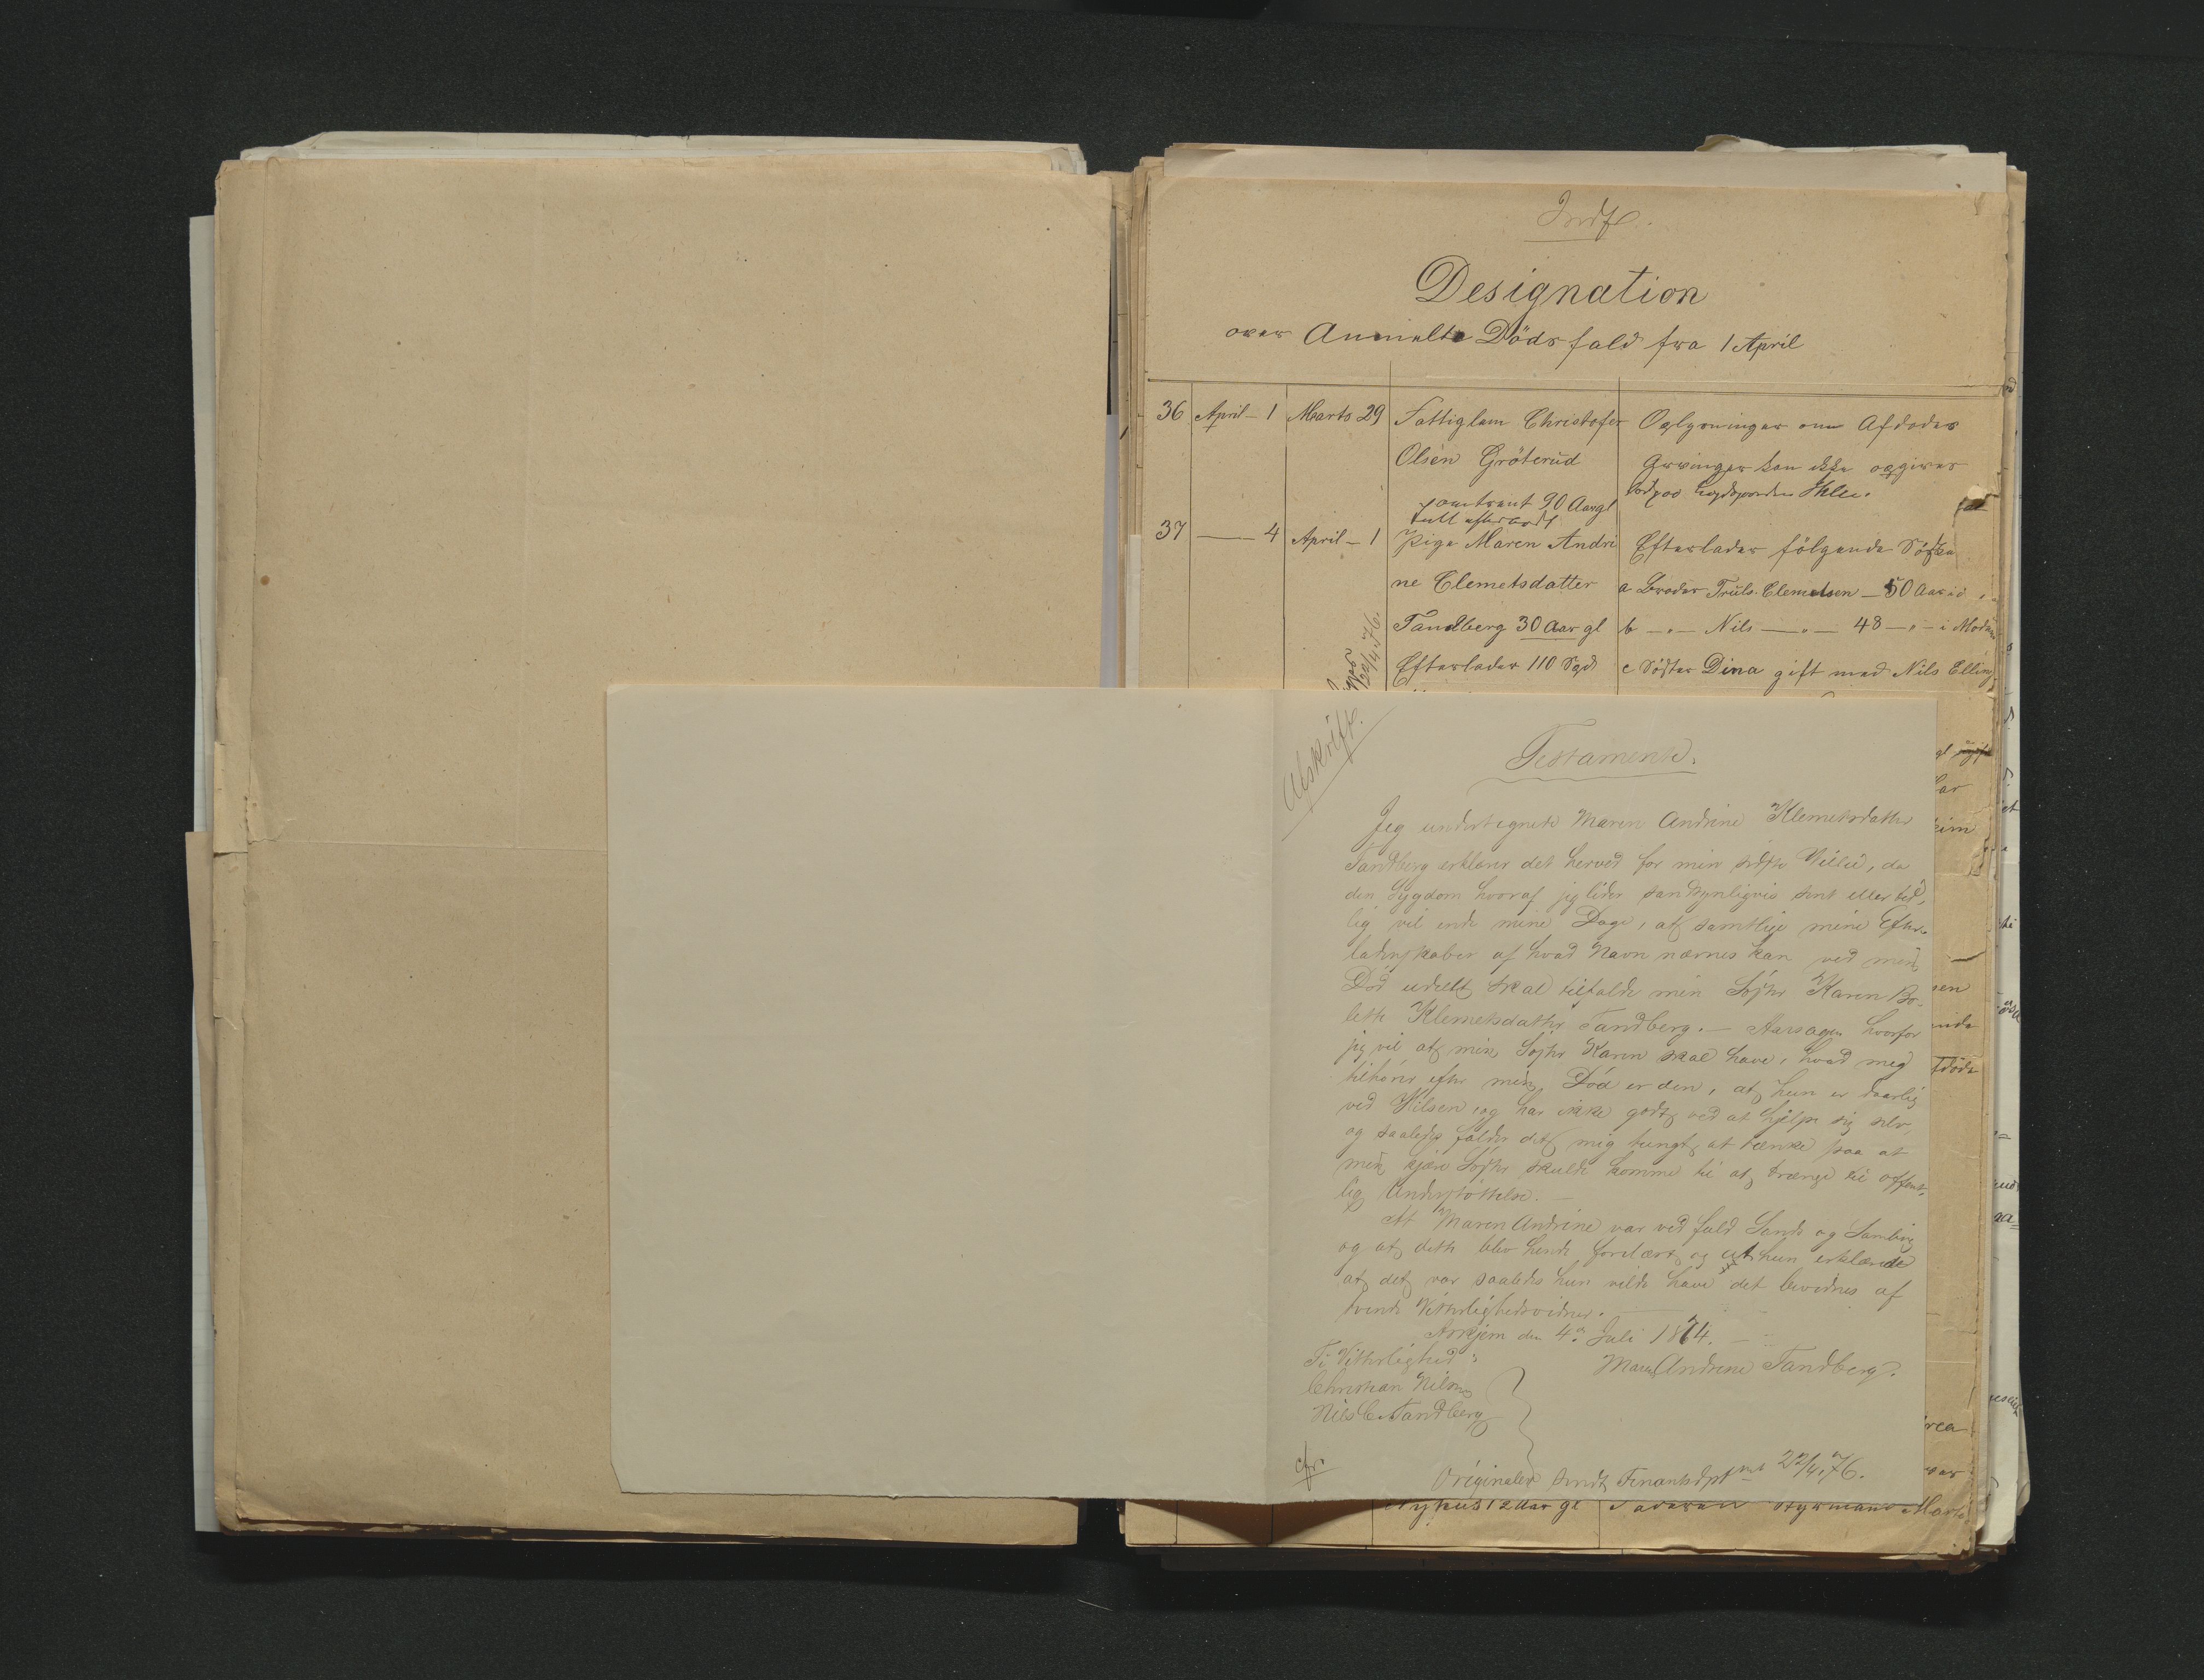 Indf.
Designation
over Anmeldte Dödsfald fra 1 April
36 April - 1 Marts 29 Fattiglem Christofer Oplysninger om Afdødes
Olsen Gröterud Arvinger kan ikke opgives
omtrent 90 Aar gl
37 — 4 April - 1 Pige Maren Andri Efterlader fölgende Södsken
ne Clemetsdatter a Broder Truls Clemetsen — 50 Aar
Tandberg 30 Aar gl b — " — Nils — " — 48 — " — i Modum
Efterlader 110 Spd c Södster Dina gift med Nils Elling
12/4 76.
Afskrift.
Testamente.
Jeg undertegnede Maren Andrine Klemetsdatter
Tandberg erklærer det herved for min sidste Villie, da
den Sygdom hvoraf jeg lider sandsynligvis sent eller tid,
lig vil ende mine Dage, at samtlige mine Efter-
ladenskaber af hvad Navn nævnes kan ved min
Död udelt skal tilfalde min Söster Karen Bo-
lette Klemetsdatter Tandberg. — Aarsagen hvorfor
jeg vil at min Söster Karen skal have, hvad meg
tilhører efter min Död er den, at hun er daarlig
ved Hilsen og har ikke godt ved at hjelpe sig selv,
og saaledes falder det mig tungt at tænke paa at
min kjære Söster skulde komme til at trænge til offent,
lig Understöttelse. —
At Maren Andrine var ved fuld Sands og Samling
og at dette blev hende forelæst og at hun erklærede
at det var saaledes hun vilde have det bevidnes af
tvende Vitterlighedsvidner. —
Askjem den 4de Juli 1874. —
Til Vitterlighed: Maren Andrine Tandberg.
Christian Nilsen
Nils C. Tandberg
cfr.
Originalen sendt Finantsdptmt 22/4 76.
12 Aar gl Faderen Styrmand Marti